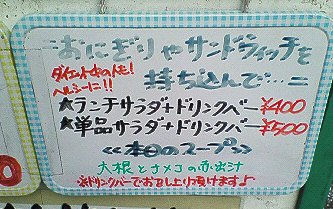 おにぎりやサンドウィッチを
ダイエット中の人も!
ヘルシーに!!
持ち込んで…=
★ランチサラダ+ドリンクバー¥400
★単品サラダ+ドリンクバー¥500
≪本日のスープ≫
大根とナメコの赤出汁
※ドリンクバーでお召し上り頂けます♪
0